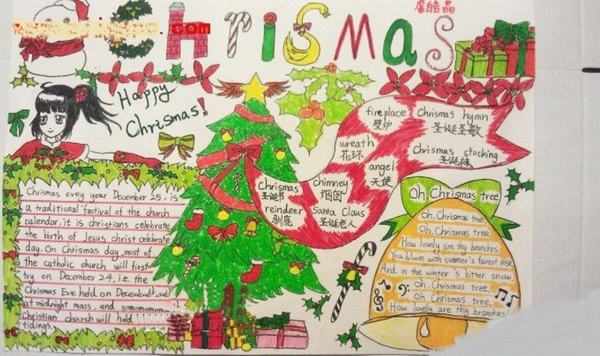 ChrisMas
Happy
Chrismas!
fireplace
壁炉
Chrismas hymn
圣诞圣歌
wreath
花环
Chrismas stocking
圣诞袜
angel
天使
Chrismas
圣诞节
chimney
烟囱
reindeer
驯鹿
Santa Claus
圣诞老人
Chrismas evey year December 25. is
a traditional festival of the church
calendar. it is christians celebrate
the birth of Jesus christ celebrate
day. On Chrismas day, most of
the catholic church will first
try on December 24, i.e. the
Chrismas Eve held on December
at midnight mass, and
Christian church will hold
tidings.
Oh, Chrismas tree
Oh, Chrismas tree
Oh, Chrismas tree,
How lovely are thy branches
And in the winter's bitter snow
Oh, Chrismas tree,
Oh, Chrismas tree,
How lovely are thy branches